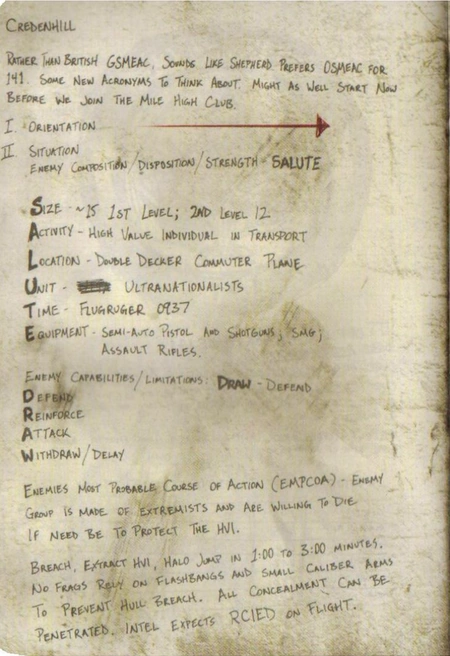 CREDENHILL
RATHER THAN BRITISH GSMEAC, SOUNDS LIKE SHEPHERD PREFERS OSMEAC FOR
141. SOME NEW ACRONYMS TO THINK ABOUT. MIGHT AS WELL START NOW
BEFORE WE JOIN THE MILE HIGH CLUB.
I. ORIENTATION
II SITUATION
ENEMY COMPOSITION/DISPOSITION/STRENGTH - SALUTE
SIZE - ~15 1ST LEVEL; 2ND LEVEL 12
ACTIVITY - HIGH VALUE INDIVIDUAL IN TRANSPORT
LOCATION - DOUBLE DECKER COMMUTER PLANE
UNIT - ULTRANATIONALISTS
TIME - FLUGRUGER 0937
EQUIPMENT - SEMI-AUTO PISTOL AND SHOTGUNS; SMG;
ASSAULT RIFLES.
ENEMY CAPABILITIES/LIMITATIONS: DRAW - DEFEND
DEFEND
REINFORCE
ATTACK
WITHDRAW/DELAY
ENEMIES MOST PROBABLE COURSE OF ACTION (EMPCOA) - ENEMY
GROUP IS MADE OF EXTREMISTS AND ARE WILLING TO DIE
IF NEED BE TO PROTECT THE HVI.
BREACH, EXTRACT HVI, HALO JUMP IN 1:00 TO 3:00 MINUTES.
NO FRAGS RELY ON FLASHBANGS AND SMALL CALIBER ARMS
TO PREVENT HULL BREACH. ALL CONCEALMENT CAN BE
PENETRATED. INTEL EXPECTS RCIED ON FLIGHT.